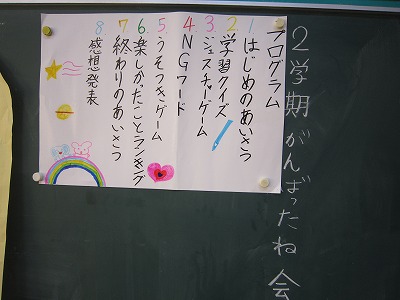 2学期がんばったね会
プログラム
1 はじめのあいさつ
2 学習クイズ
3 ジェスチャーゲーム
4 NGワード
5 うそつきゲーム
6 楽しかったことランキング
7 終わりのあいさつ
8 感想発表